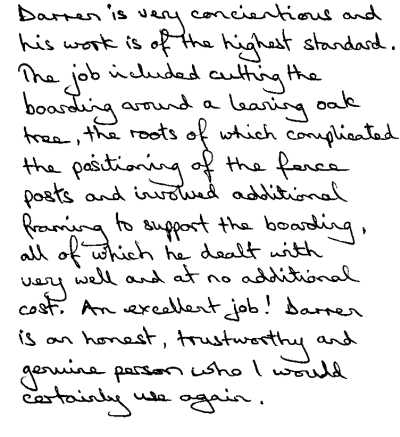 Darren is very concientious and
his work is of the highest standard.
The job included cutting the
boarding around a leaning oak
tree, the roots of which complicated
the positioning of the fence
posts and involved additional
framing to support the boarding,
all of which he dealt with
very well and at no additional
cost. An excellent job! Darren
is an honest, trustworthy and
genuine person who I would
certainly use again.